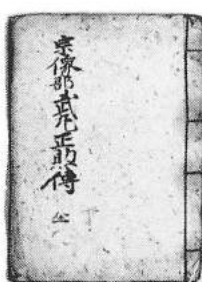 宗像郡武丸正助傳 全